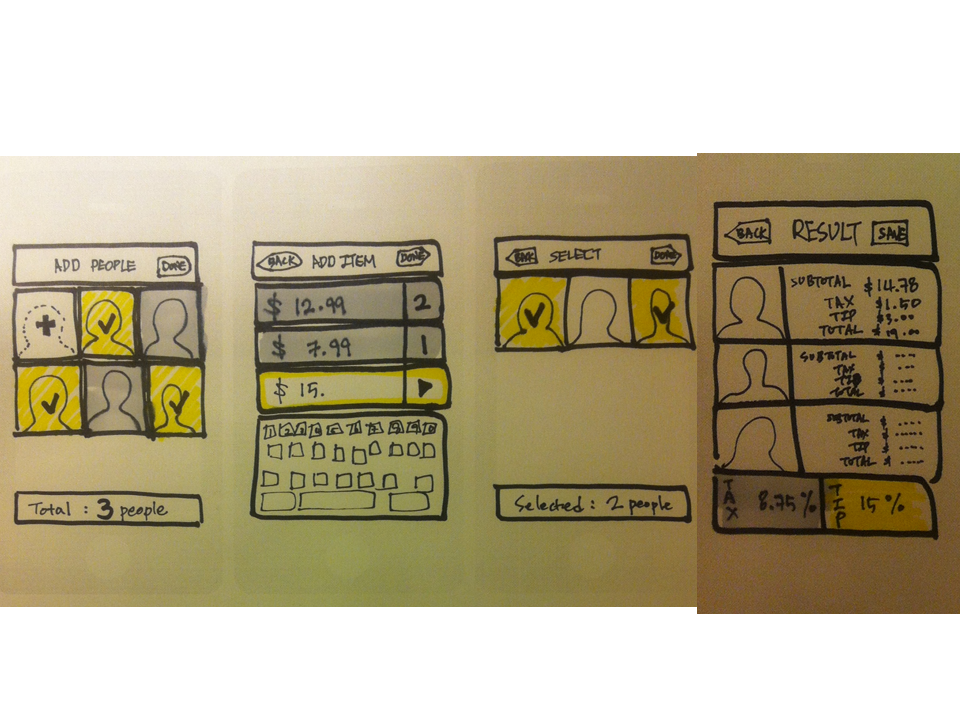 ADD PEOPLE DONE
Total : 3 people
BACK ADD ITEM DONE
$ 12.99 2
$ 7.99 1
$ 15.
1 2 3 4 5 6 7 8 9 0
BACK SELECT DONE
Selected : 2 people
BACK RESULT SAVE
SUBTOTAL $14.78
TAX $1.50
TIP $3.00
TOTAL $19.00
SUBTOTAL $ ----
TAX $ ----
TIP $ ----
TOTAL $ ----
SUBTOTAL $ ----
TAX $ ----
TIP $ ----
TOTAL $ ----
TAX 8.75 %
TIP 15 %